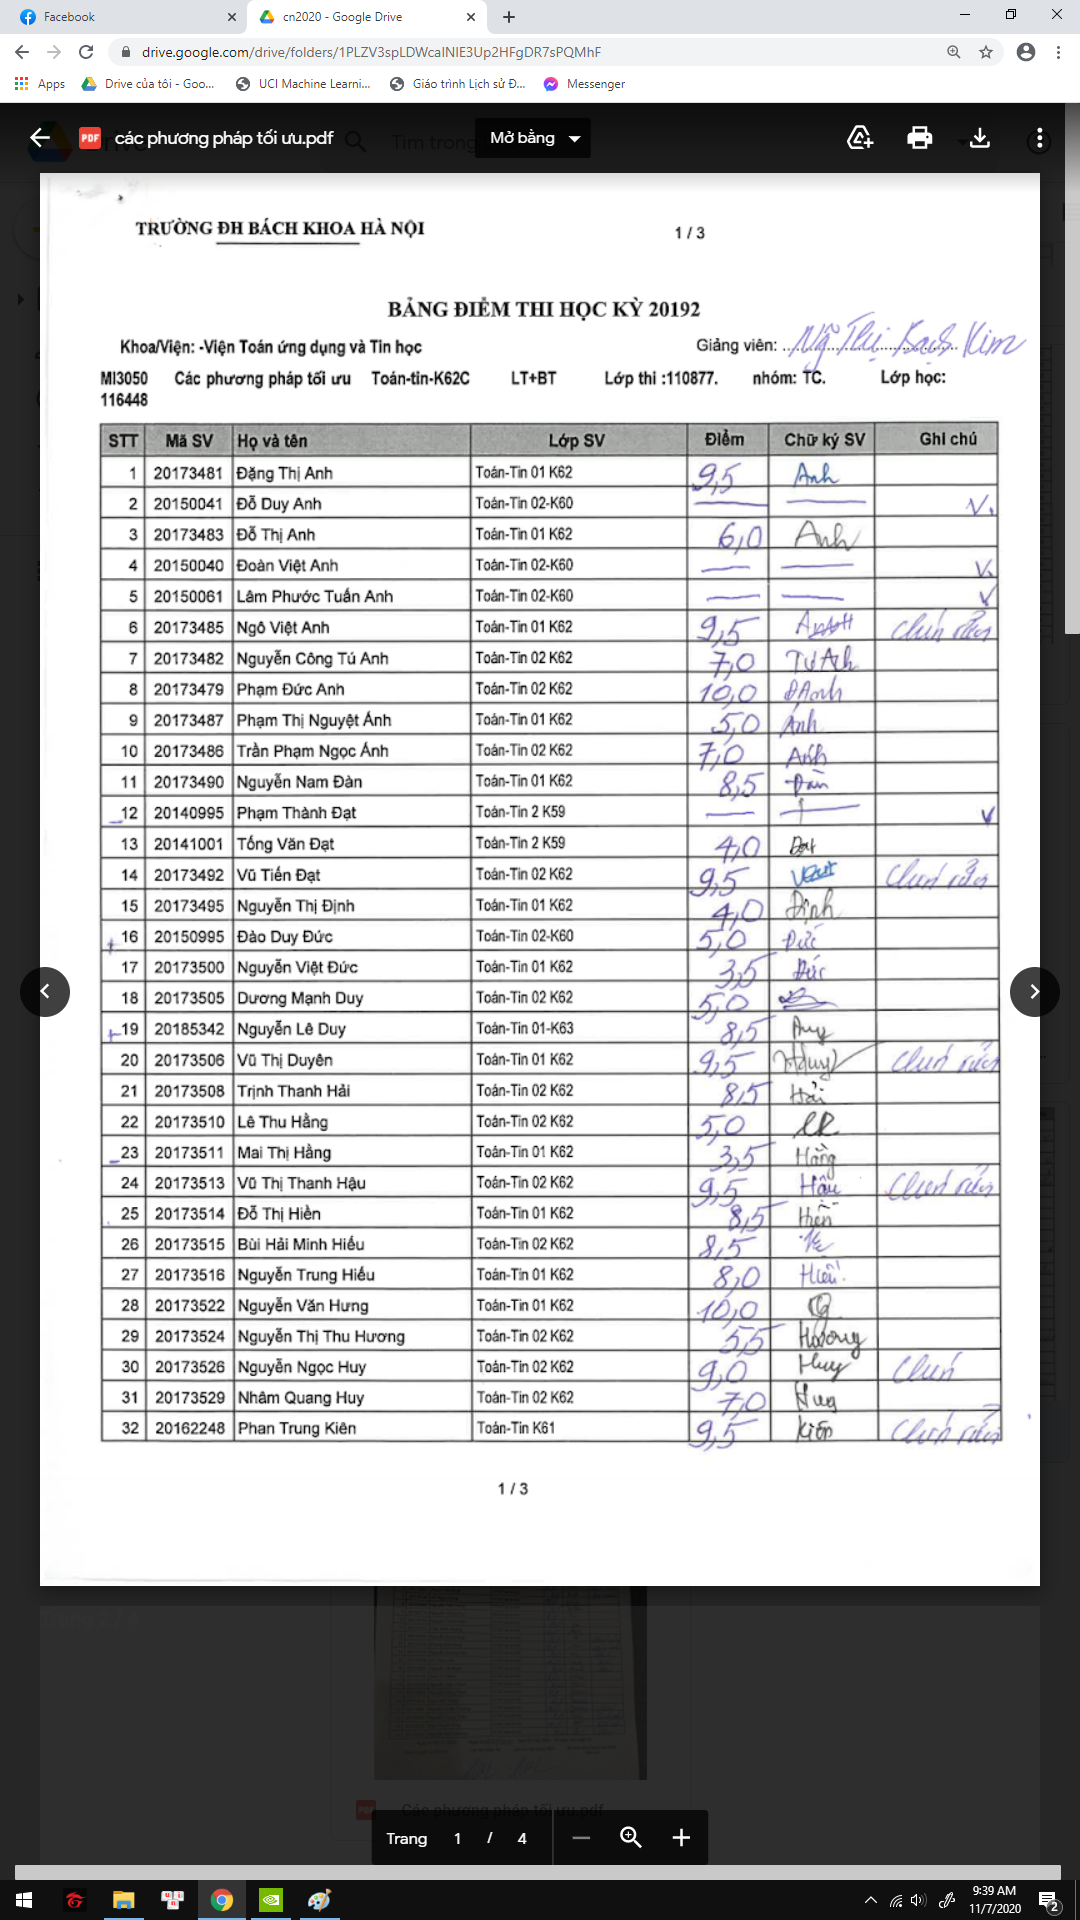 Facebook
cn2020 - Google Drive
drive.google.com/drive/folders/1PLZV3spLDWcaINlE3Up2HFgDR7sPQMhF
Apps Drive của tôi - Goo... UCI Machine Learni... Giáo trình Lịch sử Đ... Messenger
PDF các phương pháp tối ưu.pdf Tìm trong Mở bằng
TRƯỜNG ĐH BÁCH KHOA HÀ NỘI 1 / 3
BẢNG ĐIỂM THI HỌC KỲ 20192
Khoa/Viện: -Viện Toán ứng dụng và Tin học Giảng viên: Ng Thị Bạch Kim
MI3050 Các phương pháp tối ưu Toán-tin-K62C LT+BT Lớp thi :110877. nhóm: TC. Lớp học:
116448
STT Mã SV Họ và tên Lớp SV Điểm Chữ ký SV Ghi chú
1 20173481 Đặng Thị Anh Toán-Tin 01 K62 9,5 Anh
2 20150041 Đỗ Duy Anh Toán-Tin 02-K60 — — V.
3 20173483 Đỗ Thị Anh Toán-Tin 01 K62 6,0 Anh
4 20150040 Đoàn Việt Anh Toán-Tin 02-K60 — — V.
5 20150061 Lâm Phước Tuấn Anh Toán-Tin 02-K60 — — V
6 20173485 Ngô Việt Anh Toán-Tin 01 K62 9,5
7 20173482 Nguyễn Công Tú Anh Toán-Tin 02 K62 7,0 Tú Anh
8 20173479 Phạm Đức Anh Toán-Tin 02 K62 10,0 ĐAnh
9 20173487 Phạm Thị Nguyệt Ánh Toán-Tin 01 K62 5,0 Ánh
10 20173486 Trần Phạm Ngọc Ánh Toán-Tin 02 K62 7,0 Ánh
11 20173490 Nguyễn Nam Đàn Toán-Tin 01 K62 8,5 Đàn
12 20140995 Phạm Thành Đạt Toán-Tin 2 K59 — — V
13 20141001 Tống Văn Đạt Toán-Tin 2 K59 4,0 Đạt
14 20173492 Vũ Tiến Đạt Toán-Tin 02 K62 9,5
15 20173495 Nguyễn Thị Định Toán-Tin 01 K62 4,0 Định
+ 16 20150995 Đào Duy Đức Toán-Tin 02-K60 5,0 Đức
17 20173500 Nguyễn Việt Đức Toán-Tin 01 K62 3,5 Đức
18 20173505 Dương Mạnh Duy Toán-Tin 02 K62 5,0
+ 19 20185342 Nguyễn Lê Duy Toán-Tin 01-K63 8,5 Duy
20 20173506 Vũ Thị Duyên Toán-Tin 01 K62 9,5
21 20173508 Trịnh Thanh Hải Toán-Tin 02 K62 8,5 Hải
22 20173510 Lê Thu Hằng Toán-Tin 02 K62 5,0
23 20173511 Mai Thị Hằng Toán-Tin 01 K62 3,5 Hằng
24 20173513 Vũ Thị Thanh Hậu Toán-Tin 02 K62 9,5 Hậu
25 20173514 Đỗ Thị Hiền Toán-Tin 01 K62 8,5 Hiền
26 20173515 Bùi Hải Minh Hiếu Toán-Tin 02 K62 8,5
27 20173516 Nguyễn Trung Hiếu Toán-Tin 01 K62 8,0 Hiếu
28 20173522 Nguyễn Văn Hưng Toán-Tin 01 K62 10,0
29 20173524 Nguyễn Thị Thu Hương Toán-Tin 02 K62 5,5 Hương
30 20173526 Nguyễn Ngọc Huy Toán-Tin 02 K62 9,0 Huy
31 20173529 Nhâm Quang Huy Toán-Tin 02 K62 7,0 Huy
32 20162248 Phan Trung Kiên Toán-Tin K61 9,5 Kiên
1 / 3
PDF Các phương pháp tối ưu.pdf
Trang 1 / 4
9:39 AM
11/7/2020
2